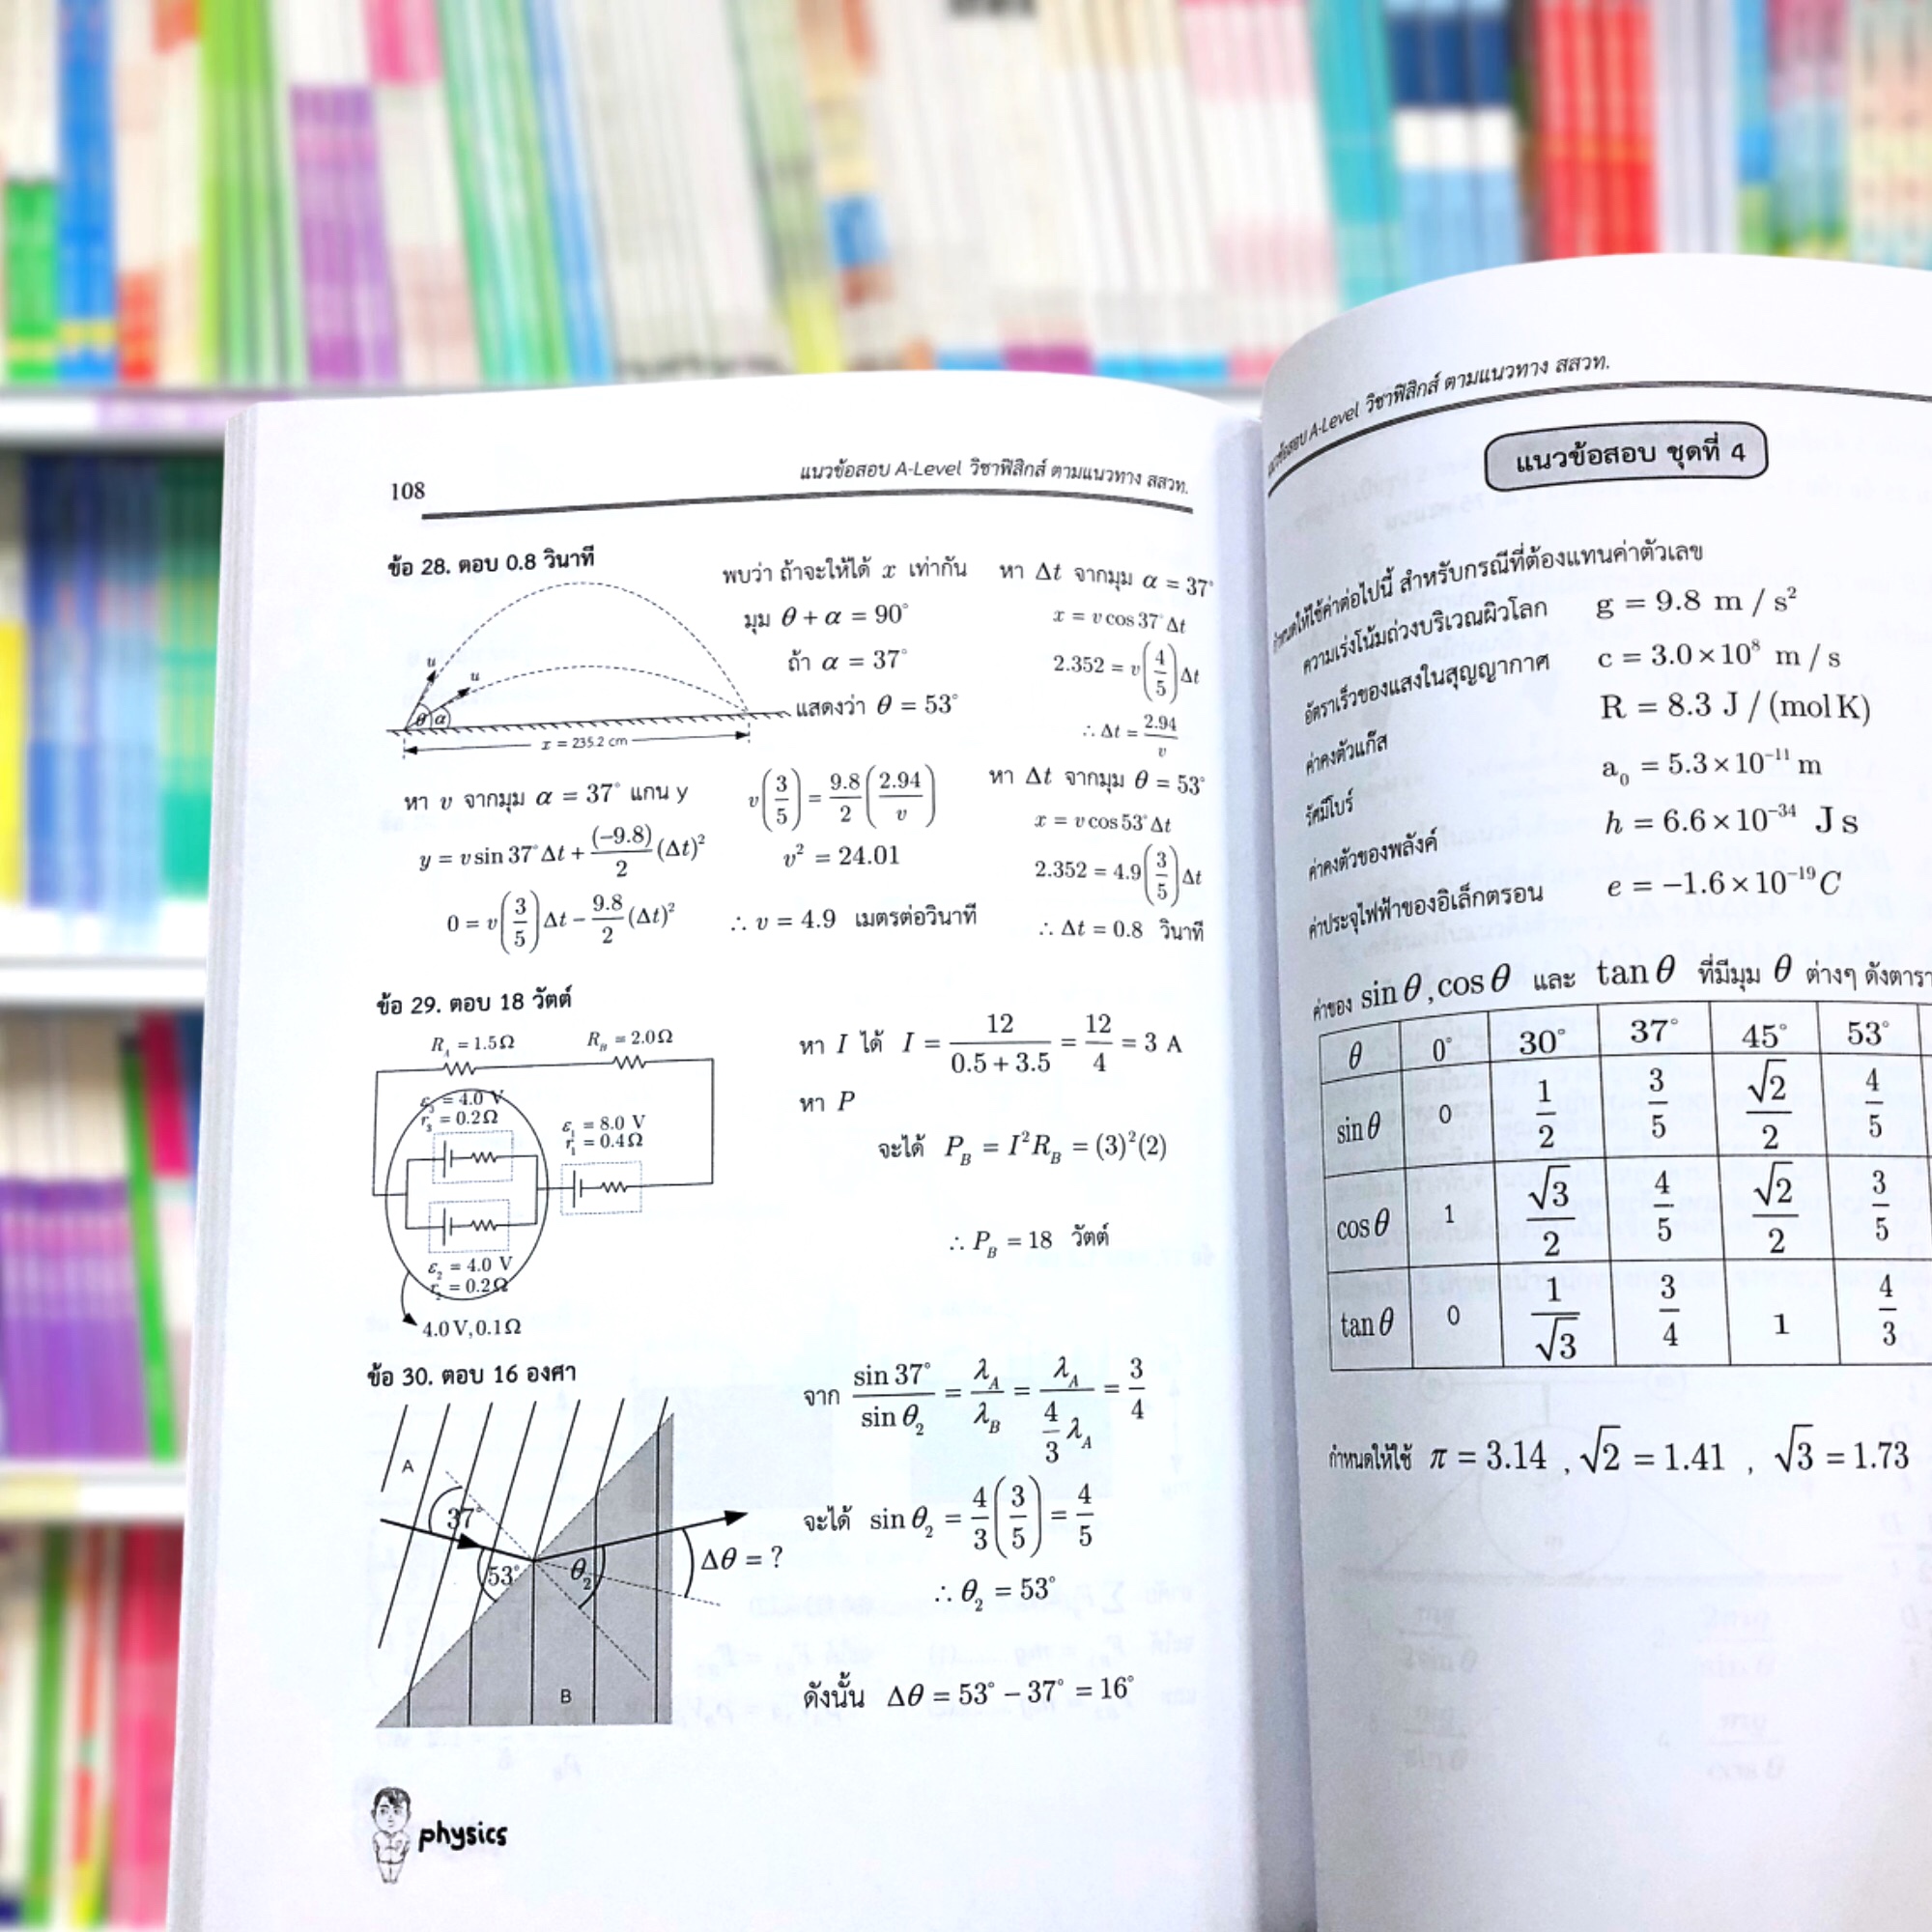 108
แนวข้อสอบ A-Level วิชาฟิสิกส์ ตามแนวทาง สสวท.
ข้อ 28. ตอบ 0.8 วินาที
u
u
θ α
x = 235.2 cm
พบว่า ถ้าจะให้ได้ x เท่ากัน
มุม θ + α = 90°
ถ้า α = 37°
แสดงว่า θ = 53°
หา Δt จากมุม α = 37°
x = v cos 37° Δt
2.352 = v(4/5)Δt
∴ Δt = 2.94/v
หา v จากมุม α = 37° แกน y
y = v sin 37° Δt + (−9.8)/2 (Δt)²
0 = v(3/5)Δt − 9.8/2 (Δt)²
v(3/5) = 9.8/2 (2.94/v)
v² = 24.01
∴ v = 4.9 เมตรต่อวินาที
หา Δt จากมุม θ = 53°
x = v cos 53° Δt
2.352 = 4.9(3/5)Δt
∴ Δt = 0.8 วินาที
ข้อ 29. ตอบ 18 วัตต์
R_A = 1.5Ω
R_B = 2.0Ω
ε₃ = 4.0 V
r₃ = 0.2Ω
ε₁ = 8.0 V
r₁ = 0.4Ω
ε₂ = 4.0 V
r₂ = 0.2Ω
4.0 V, 0.1Ω
หา I ได้ I = 12/(0.5 + 3.5) = 12/4 = 3 A
หา P
จะได้ P_B = I²R_B = (3)²(2)
∴ P_B = 18 วัตต์
ข้อ 30. ตอบ 16 องศา
A
37°
53°
θ₂
Δθ = ?
B
จาก sin 37°/sin θ₂ = λ_A/λ_B = λ_A/(4/3 λ_A) = 3/4
จะได้ sin θ₂ = 4/3 (3/5) = 4/5
∴ θ₂ = 53°
ดังนั้น Δθ = 53° − 37° = 16°
physics
แนวข้อสอบ A-Level วิชาฟิสิกส์ ตามแนวทาง สสวท.
แนวข้อสอบ ชุดที่ 4
กำหนดให้ใช้ค่าต่อไปนี้ สำหรับกรณีที่ต้องแทนค่าตัวเลข
ความเร่งโน้มถ่วงบริเวณผิวโลก g = 9.8 m / s²
อัตราเร็วของแสงในสุญญากาศ c = 3.0 × 10⁸ m / s
ค่าคงตัวแก๊ส R = 8.3 J / (mol K)
รัศมีโบร์ a₀ = 5.3 × 10⁻¹¹ m
ค่าคงตัวของพลังค์ h = 6.6 × 10⁻³⁴ J s
ค่าประจุไฟฟ้าของอิเล็กตรอน e = −1.6 × 10⁻¹⁹ C
ค่าของ sin θ , cos θ และ tan θ ที่มีมุม θ ต่างๆ ดังตารา
θ 0° 30° 37° 45° 53°
sin θ 0 1/2 3/5 √2/2 4/5
cos θ 1 √3/2 4/5 √2/2 3/5
tan θ 0 1/√3 3/4 1 4/3
กำหนดให้ใช้ π = 3.14 , √2 = 1.41 , √3 = 1.73